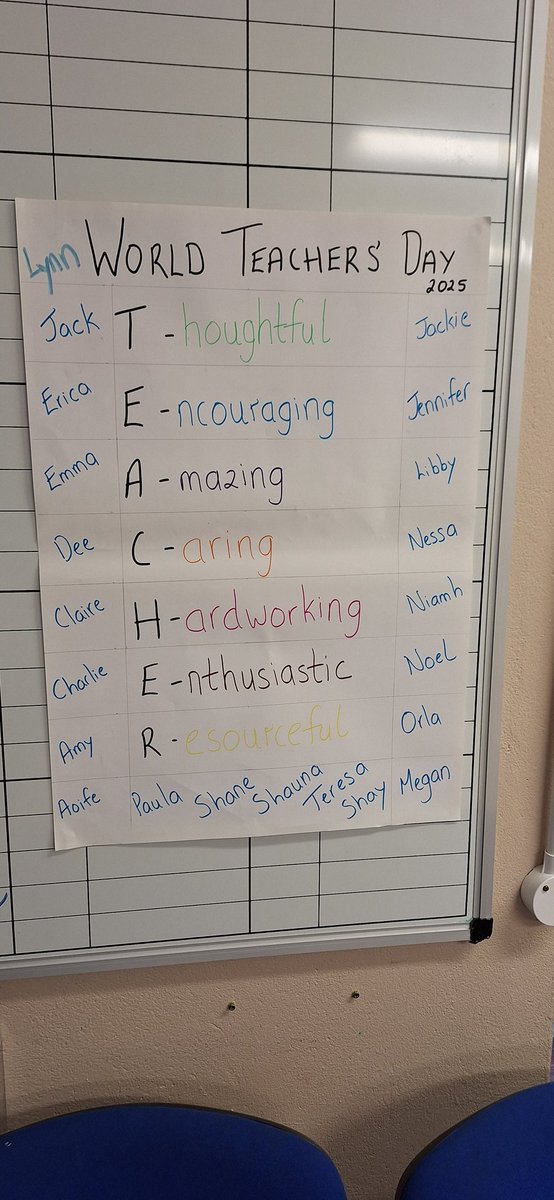 Lynn WORLD TEACHERS' DAY
2025
Jack T - houghtful Jackie
Erica E - ncouraging Jennifer
Emma A - mazing Libby
Dee C - aring Nessa
Claire H - ardworking Niamh
Charlie E - nthusiastic Noel
Amy R - esourceful Orla
Aoife Paula Shane Shauna Teresa Shay Megan